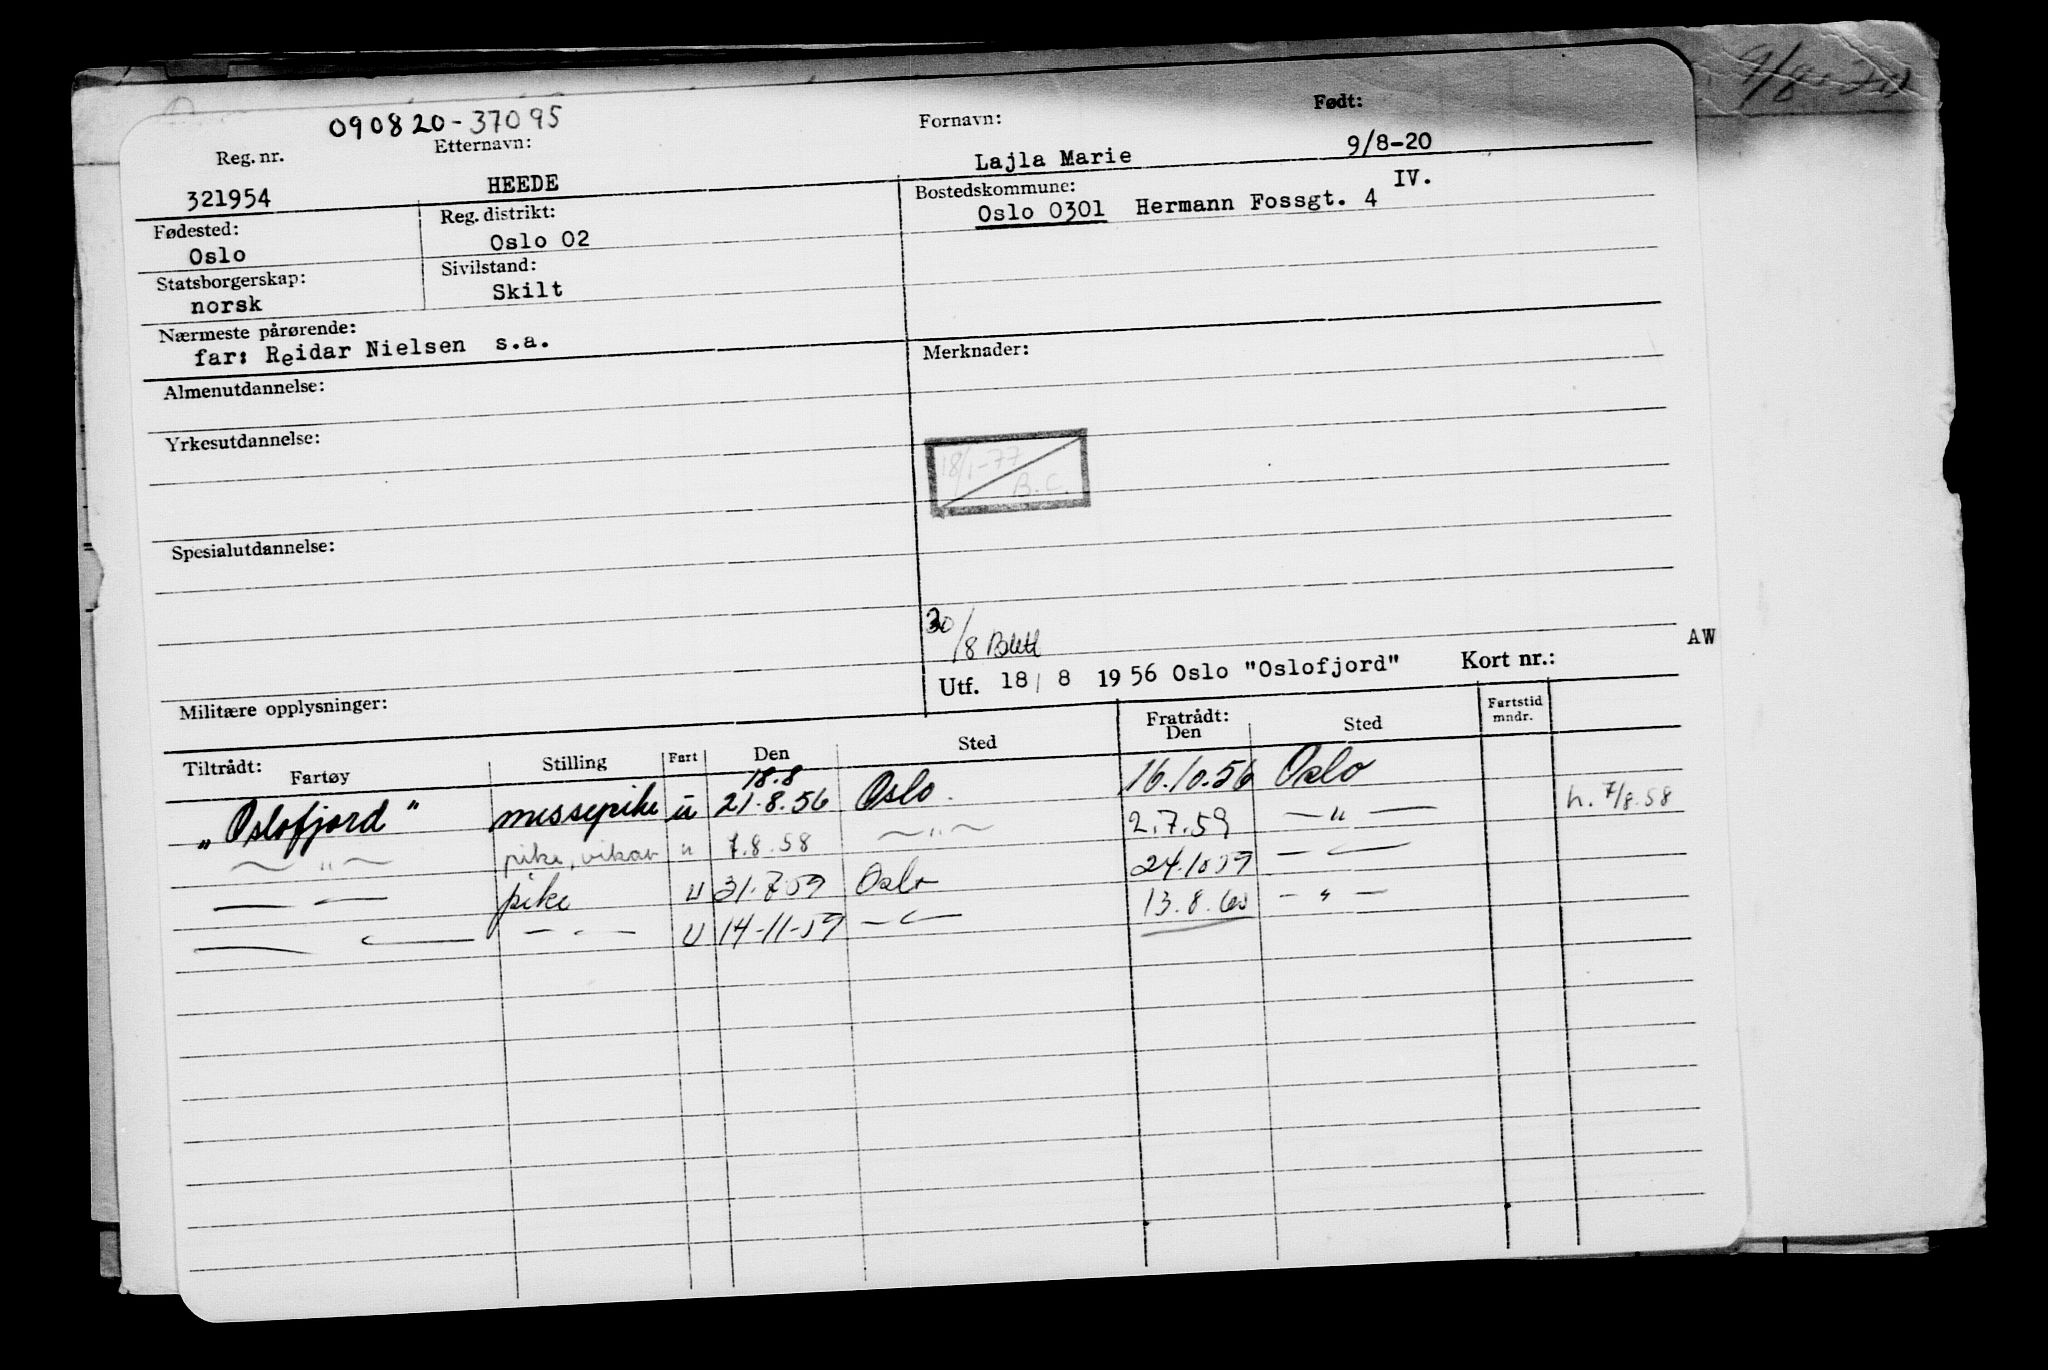 090820-37095
Reg. nr. Etternavn: Fornavn: Født:
321954 HEEDE Lajla Marie 9/8-20
Fødested: Reg. distrikt: Bostedskommune:
Oslo Oslo 02 Oslo 0301 Hermann Fossgt. 4 IV.
Statsborgerskap: Sivilstand:
norsk Skilt
Nærmeste pårørende:
far: Reidar Nielsen s.a.
Almenutdannelse: Merknader:
Yrkesutdannelse:
18/1-77
B.C.
Spesialutdannelse:
30/8 Blett
AW
Utf. 18/8 1956 Oslo "Oslofjord" Kort nr.:
Militære opplysninger:
Tiltrådt: Fartøy Stilling Fart Den Sted Fratrådt: Den Sted Fartstid mndr.
18.8
"Oslofjord" messepike u 21.8.56 Oslo 16.10.56 Oslo
— " — pike, vikar u 7.8.58 — " — 2.7.59 — " — h. 7/8.58
— " — pike u 31.7.59 Oslo 24.10.59 — " —
— " — — " — u 14-11-59 — " — 13.8.60 — " —